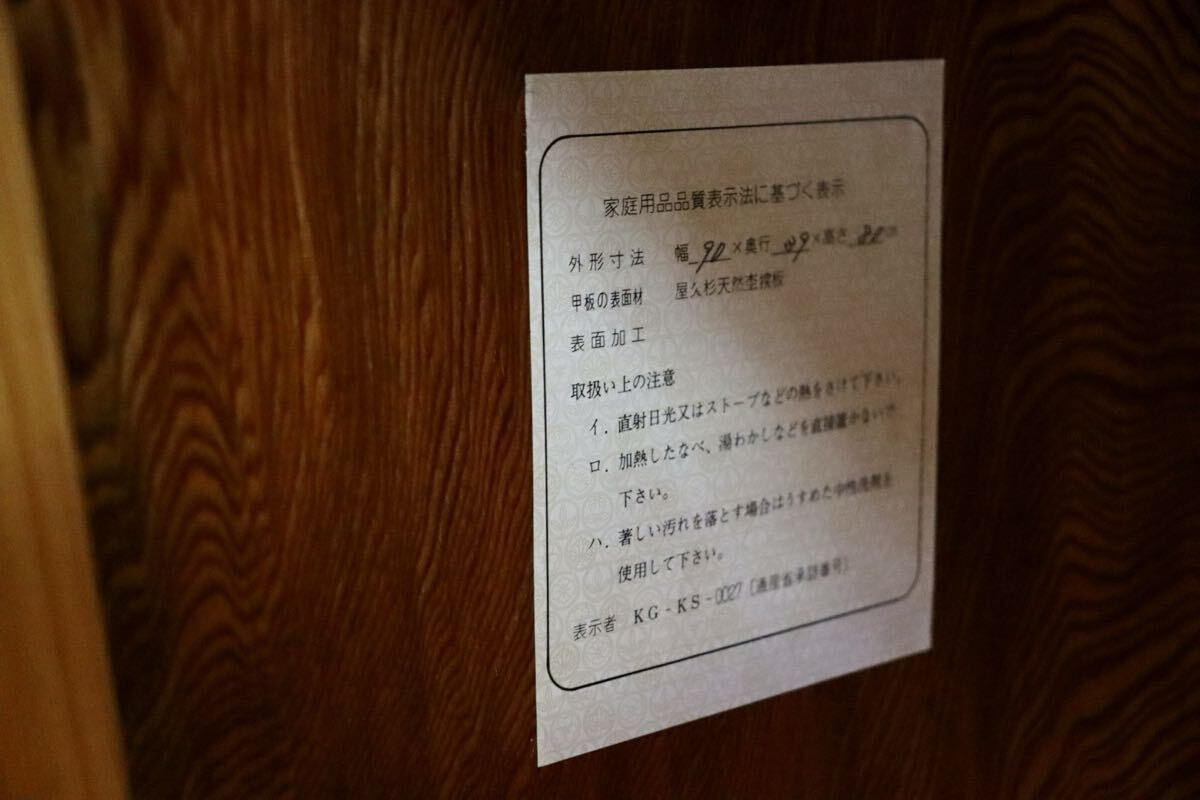 家庭用品品質表示法に基づく表示
外形寸法 幅 90 ×奥行 ×高さ cm
甲板の表面材 屋久杉天然杢接板
表面加工
取扱い上の注意
イ. 直射日光又はストーブなどの熱をさけて下さい。
ロ. 加熱したなべ、湯わかしなどを直接置かないで
下さい。
ハ. 著しい汚れを落とす場合はうすめた中性洗剤を
使用して下さい。
表示者 KG-KS-0027 (通産省承認番号)